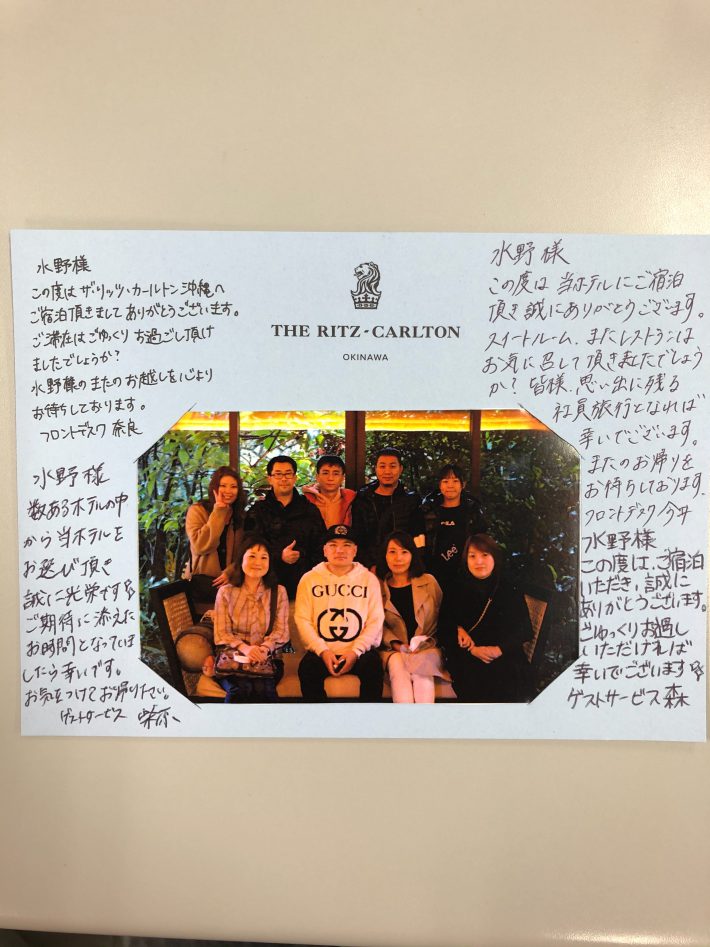 水野様
この度は ザ・リッツ・カールトン 沖縄へ
ご宿泊頂きまして ありがとうございます。
ご滞在はごゆっくり お過ごし頂け
ましたでしょうか?
水野様のまたのお越しを心より
お待ちしております。
フロントデスク 奈良
THE RITZ-CARLTON
OKINAWA
水野様
この度は 当ホテルにご宿泊
頂き誠にありがとうございます。
スイートルーム、またレストランは
お気に召して頂きましたでしょう
か? 皆様、思い出に残る
社員旅行となれば
幸いでございます。
またのお帰りを
お待ちしております。
フロントデスク 今井
水野様
数あるホテルの中
から 当ホテルを
お選び頂き
誠に光栄です
ご期待に 添えた
お時間となっていま
したら幸いです。
お気をつけてお帰り下さい。
ゲストサービス
水野様
この度は、ご宿泊
いただき、誠に
ありがとうございます。
ごゆっくりお過し
いただければ
幸いでございます
ゲストサービス 森
GUCCI
FILA
Lee